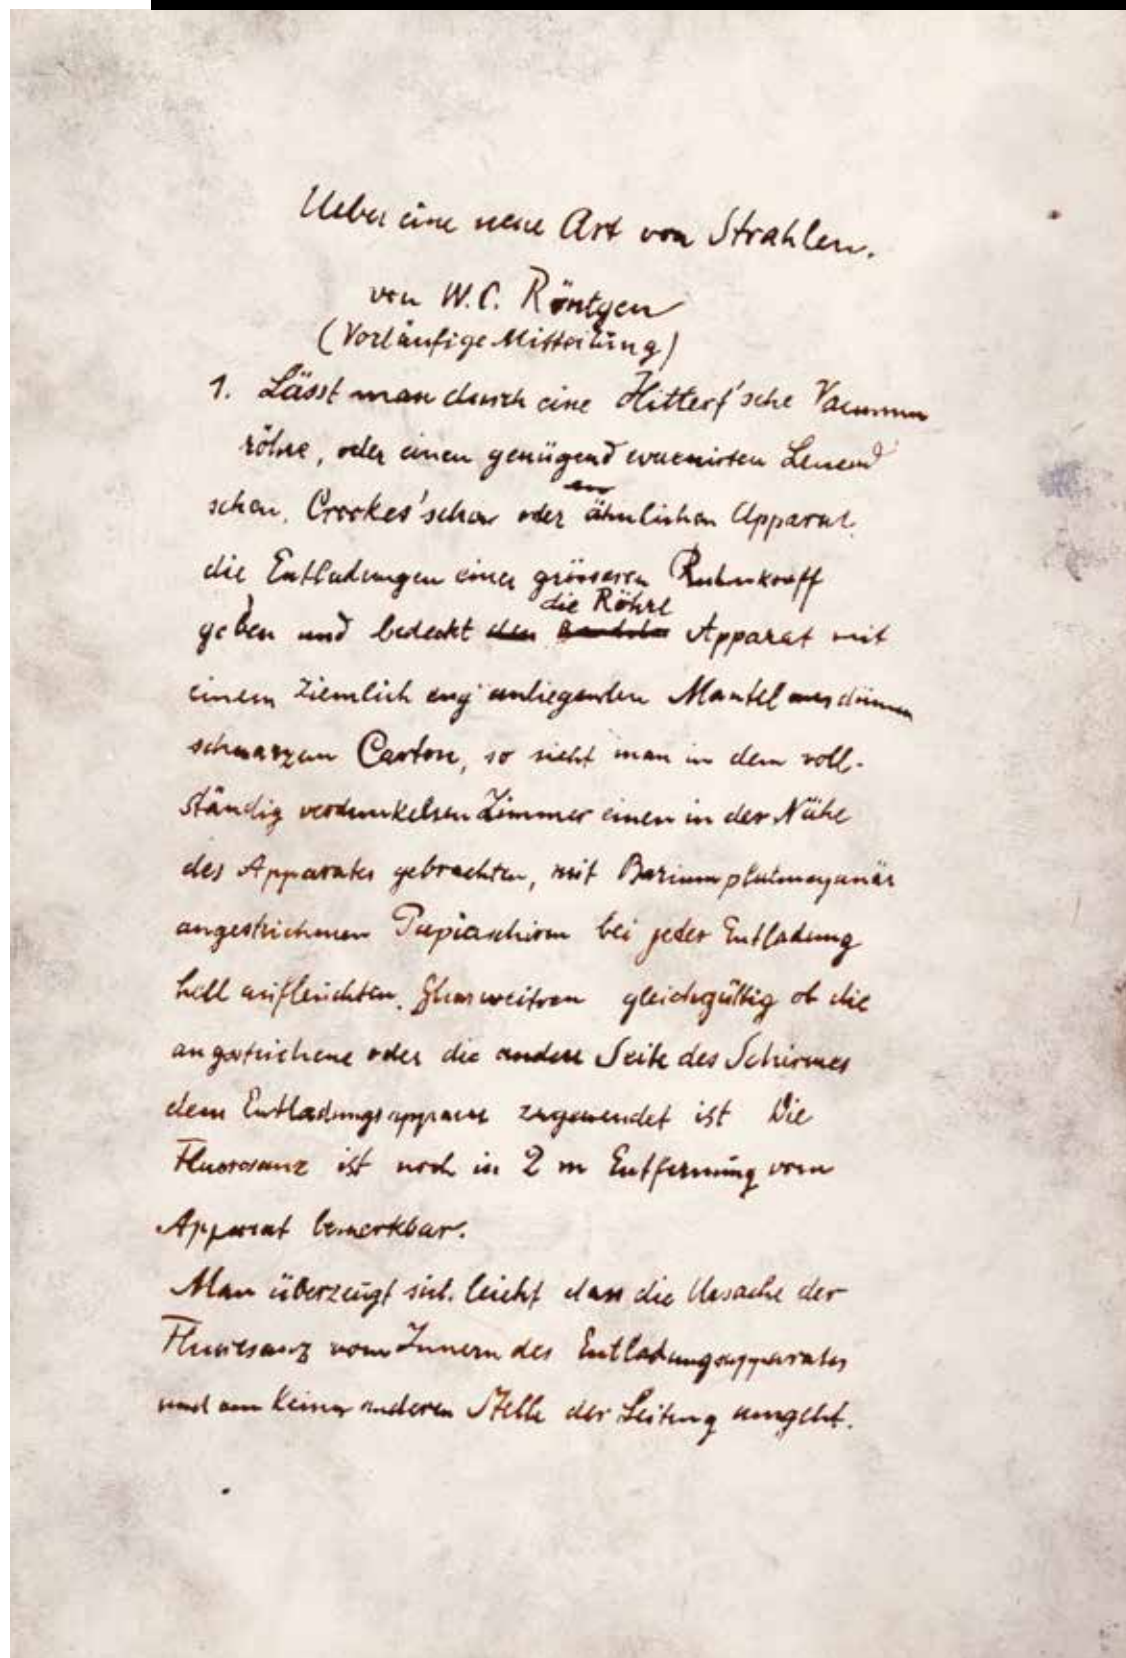 Ueber eine neue Art von Strahlen.
von W.C. Röntgen
(Vorläufige Mitteilung)
1. Lässt man durch eine Hittorf'sche Vacuum
röhre, oder einen genügend evacuirten Lenard
schen, Crookes'schen oder ähnlichen Apparat
die Entladungen eines grösseren Ruhmkorff
die Röhre
gehen und bedeckt den Apparat mit
einem ziemlich eng anliegenden Mantel aus dünnem
schwarzen Carton, so sieht man in dem voll-
ständig verdunkelten Zimmer einen in der Nähe
des Apparates gebrachten, mit Bariumplatincyanür
angestrichenen Papierschirm bei jeder Entladung
hell aufleuchten, gleichgültig ob die
angestrichene oder die andere Seite des Schirmes
dem Entladungsapparat zugewendet ist Die
Fluorescenz ist noch in 2 m Entfernung vom
Apparat bemerkbar.
Man überzeugt sich leicht dass die Ursache der
Fluorescenz vom Innern des Entladungsapparates
und von keiner anderen Stelle der Leitung ausgeht.